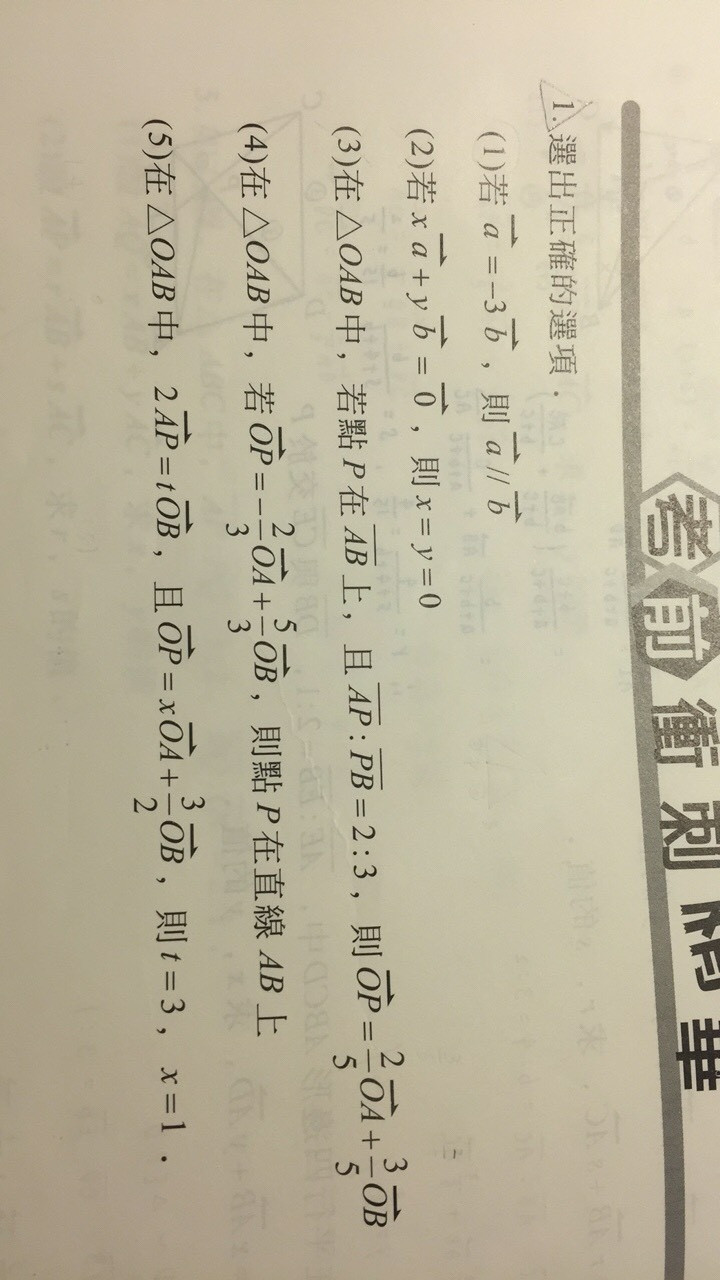 考前衝刺精華
1. 選出正確的選項．
(1)若 $\vec{a}=-3\vec{b}$，則 $\vec{a}//\vec{b}$
(2)若 $x\vec{a}+y\vec{b}=\vec{0}$，則 $x=y=0$
(3)在△OAB中，若點P在 $\overline{AB}$ 上，且 $\overline{AP}:\overline{PB}=2:3$，則 $\vec{OP}=\frac{2}{5}\vec{OA}+\frac{3}{5}\vec{OB}$
(4)在△OAB中，若 $\vec{OP}=-\frac{2}{3}\vec{OA}+\frac{5}{3}\vec{OB}$，則點P在直線AB上
(5)在△OAB中，$2\vec{AP}=t\vec{OB}$，且 $\vec{OP}=x\vec{OA}+\frac{3}{2}\vec{OB}$，則 $t=3$，$x=1$．